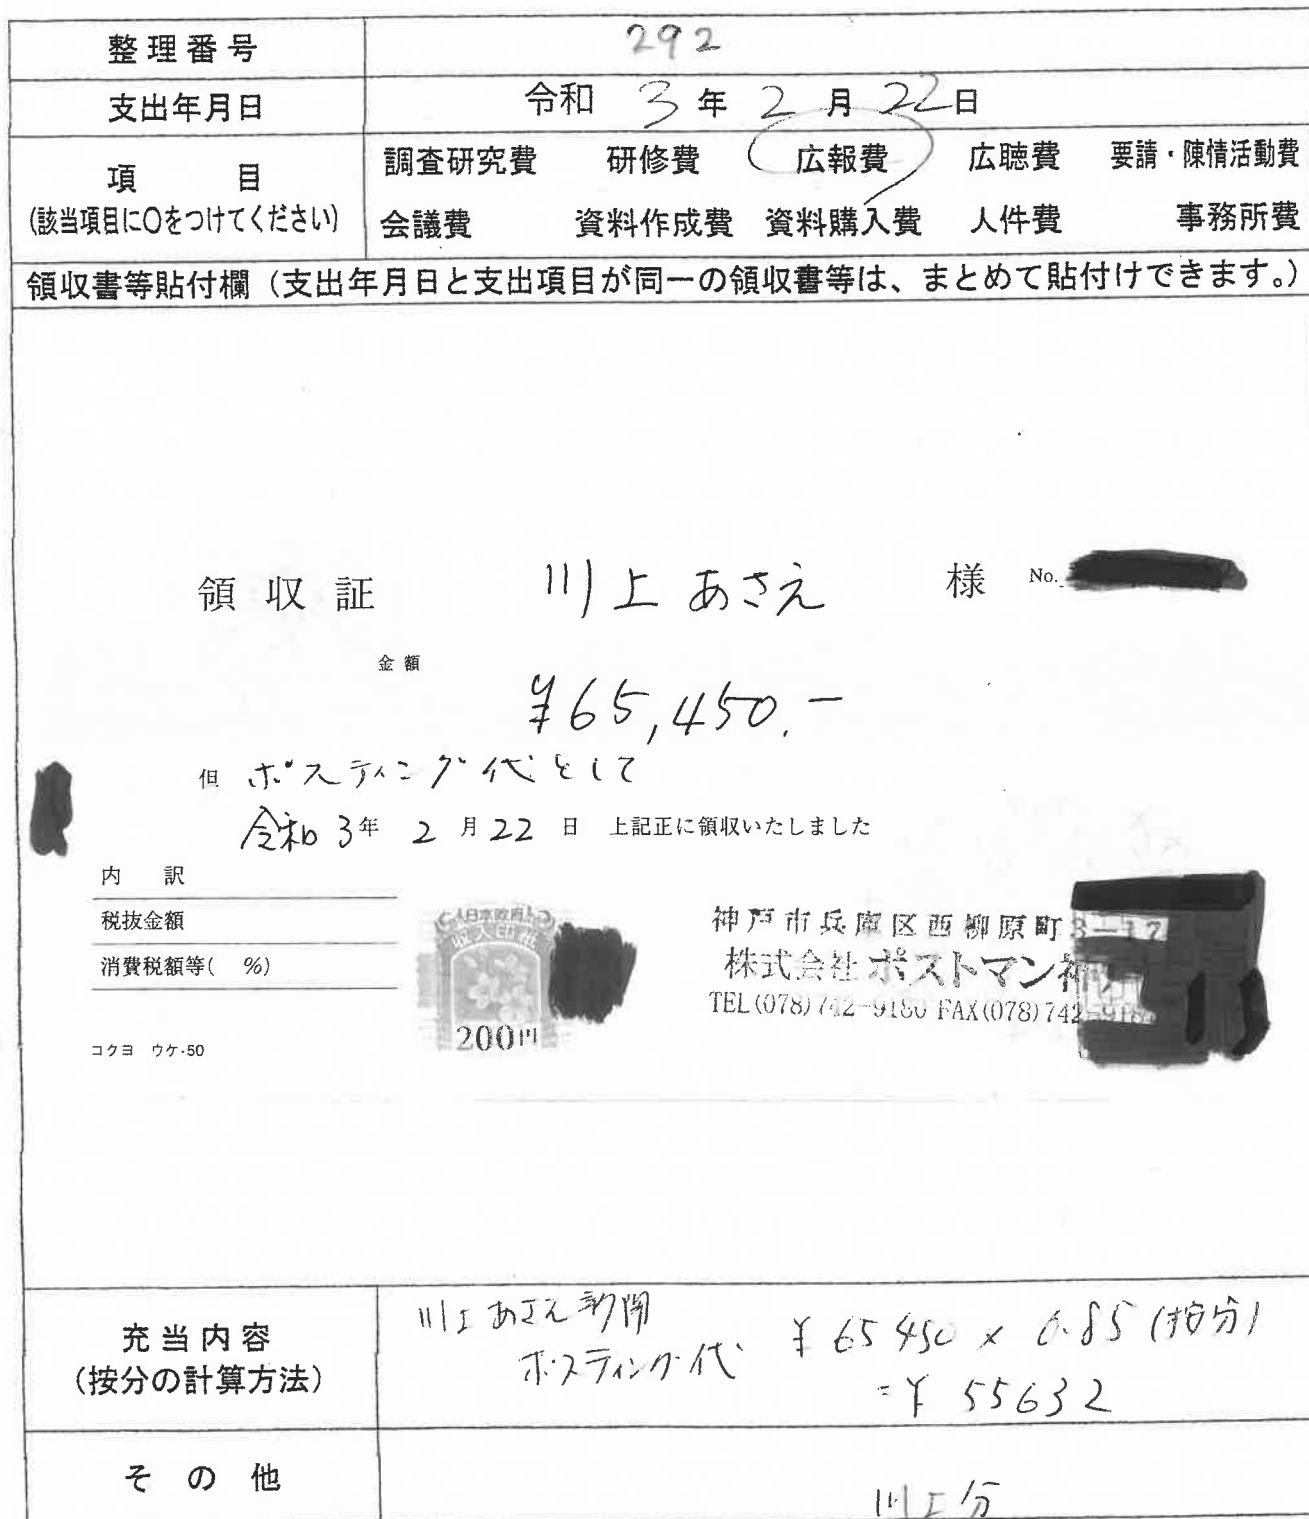 整理番号 292
支出年月日 令和 3 年 2 月 22 日
項 目 調査研究費 研修費 広報費 広聴費 要請・陳情活動費
(該当項目に〇をつけてください) 会議費 資料作成費 資料購入費 人件費 事務所費
領収書等貼付欄（支出年月日と支出項目が同一の領収書等は、まとめて貼付けできます。）
領収証 川上 あさえ 様 No.
金額
¥65,450.-
但 ポスティング代として
令和 3年 2 月 22 日 上記正に領収いたしました
内 訳
税抜金額
消費税額等( %)
コクヨ ウケ-50
日本政府
収入印紙
200円
神戸市兵庫区西柳原町3-17
株式会社 ポストマン神
TEL(078)742-9180 FAX(078)742-918
充当内容
(按分の計算方法)
川上あさえ新聞
ポスティング代 ¥65450 × 0.85 (按分)
=¥ 55632
その他
川上分